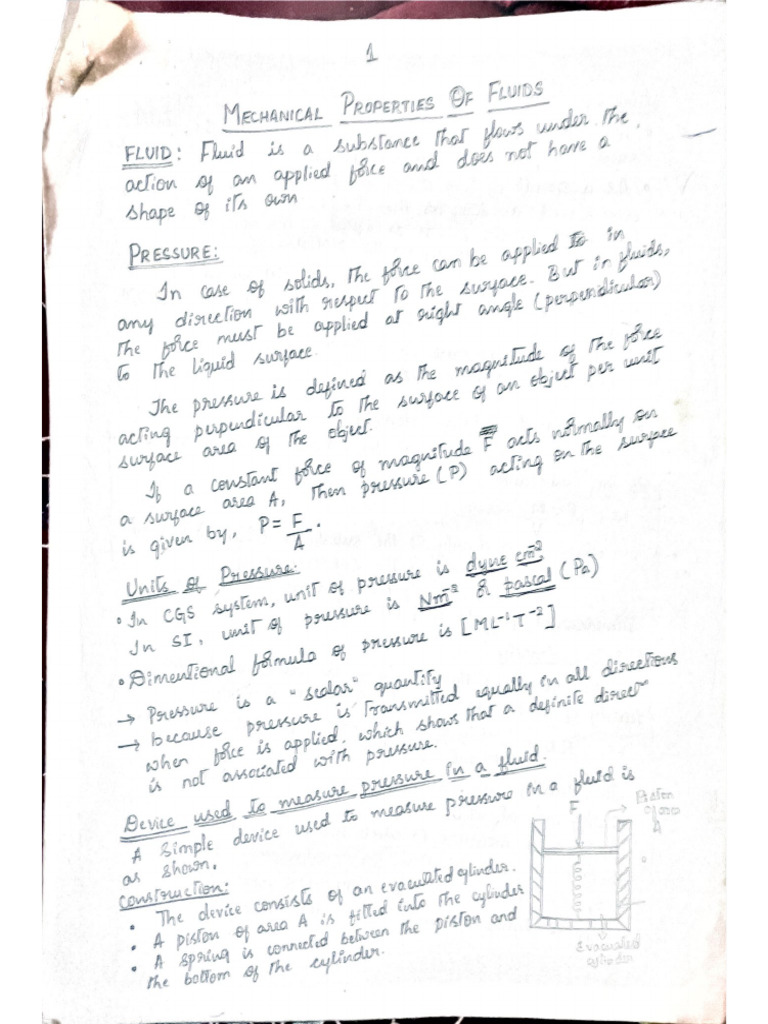 1
MECHANICAL PROPERTIES OF FLUIDS
FLUID: Fluid is a substance that flows under the
action of an applied force and does not have a
shape of its own
PRESSURE:
In case of solids, the force can be applied in
any direction with respect to the surface. But in fluids,
the force must be applied at right angle (perpendicular)
to the liquid surface.
The pressure is defined as the magnitude of the force
acting perpendicular to the surface of an object per unit
surface area of the object.
If a constant force of magnitude F acts normally on
a surface area A, then pressure (P) acting on the surface
is given by, P = F/A.
Units of Pressure:
• In CGS system, unit of pressure is dyne cm⁻²
In SI, unit of pressure is Nm⁻² or pascal (Pa)
• Dimentional formula of pressure is [ML⁻¹T⁻²]
→ Pressure is a "scalar" quantity
→ because pressure is transmitted equally in all directions
when force is applied, which shows that a definite directⁿ
is not associated with pressure.
Device used to measure pressure in a fluid.
A simple device used to measure pressure in a fluid is
as shown.
Construction:
• The device consists of an evacuated cylinder.
• A piston of area A is fitted into the cylinder
• A spring is connected between the piston and
the bottom of the cylinder.
F
Piston
of area
A
Evacuated
cylinder